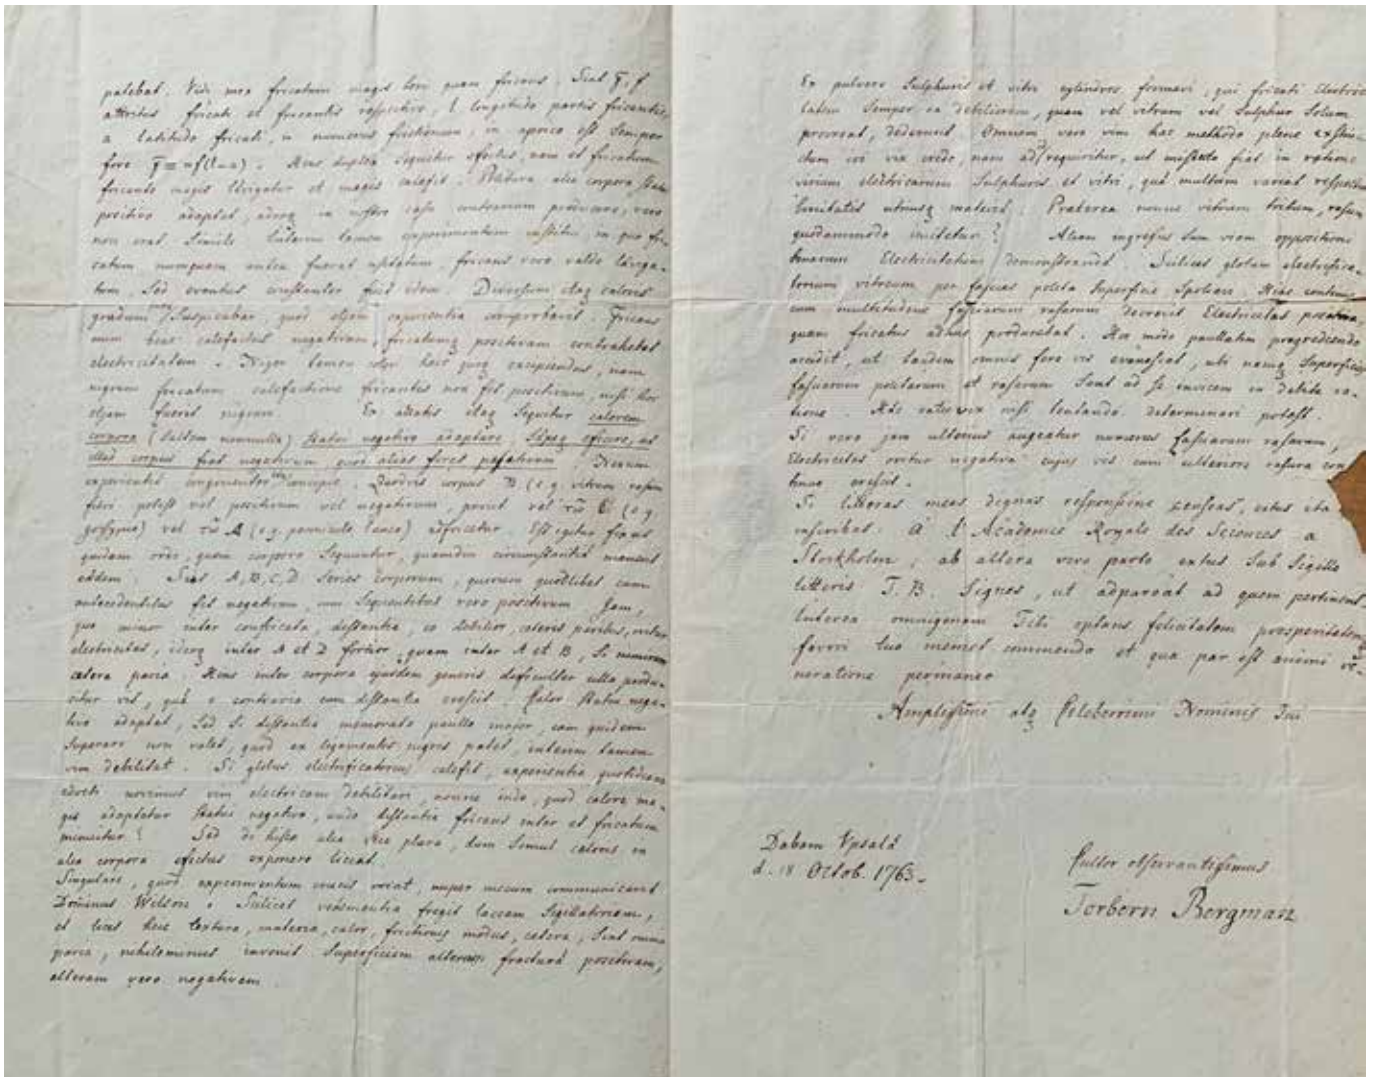 patebat. Vidi vero fricatum magis teri quam fricans. Sint F, f
attritus fricati et fricantis respective, l longitudo partis fricantis,
a latitudo fricati, n numerus frictionum, in aprico est semper
fore F = nf(l-a). Hinc duplex sequitur effectus, nam et fricatum
fricante magis lævigatur et magis calefit. Politura alia corpora statui
positivo adaptat, adeoq in nostro casu contrarium producere, vero
non erat simile. Interim tamen experimentum institui in quo fri-
catum numquam antea fuerat usitatum, fricans vero valde læviga-
tum, sed eventus constanter fuit idem. Diversum itaq caloris
gradum suspicabar quod etjam experientia comprobavit. Fricans
enim calefactus negativam, fricatumq positivam contrahebat
electricitatem. Niger tamen color heic excipiendus, nam
nigrum fricatum calefactione fricantis non fit positivum, nisi hoc
etjam fuerit nigrum. Ex allatis itaq sequitur calorem
corpora (saltem nonnulla) statui negativo adaptare, sæpeq efficere, ut
illud corpus fiat negativum, quod alias foret positivum. Necum
experientis congruenter concipio. Quodvis corpus B (e.g. vitrum rasum
fieri potest vel positivum vel negativum, prout vel τῶ C (e.g.
gossypio) vel τῶ A (e.g. panniculo laneo) adfricetur. Est igitur
quidam ordo, quem corpora sequuntur, quamdiu circumstantiæ manent
eædem. Sint A, B, C, D series corporum, quorum quodlibet cum
antecedentibus fit negativum, cum sequentibus vero positivum. Jam,
quo minor inter confricata, distantia, eo debilior, ceteris paribus, oritur
electricitas, ideoq inter A et D fortior, quam inter A et B, si
cetera paria. Hinc inter corpora ejusdem generis difficulter ulla produ-
citur vis, quæ e contrario cum distantia crescit. Calor statui nega-
tivo adaptat, sed si distantia memorata paullo major, eam quidem
superare non valet, quod ex ligamentis nigris patet, interim tamen
vim debilitat. Si globus electrificatorius calefit, experientia quotidiana
edocti novimus vim electricam debilitari, nonne inde, quod calore ma-
gis adaptatur statui negativo, unde distantia fricans inter et fricatum
minuitur? Sed de hisce alia vice plura, dum simul caloris in
alia corpora effectus exponere liceat.
Singulare, quod experimentum crucis vocat, nuper mecum communicavit
Dominus Wilson. Scilicet vehementia fregit laccam sigillatoriam,
et licet heic textura, materia, calor, frictionis modus, cetera, sint omnia
paria, nihilominus invenit superficiem alteram fracturâ positivam,
alteram vero negativam.
Ex pulvere Sulphuris et vitri cylindros formavi, qui fricati Electrici-
tatem semper ea debiliorem, quam vel vitrum vel Sulphur solum
procreat, dederunt. Omnem vero vim hac methodo plene exstin-
ctum iri vix credo, nam ad requiritur, ut mistio fiat in ratione
virium electricarum Sulphuris et vitri, quæ multum variat respectu
tenuitatis utriusq materiei. Præterea nonne vitrum tritum, rasum
quodammodo imitetur? Aliam ingressus sum viam oppositionem
binarum Electricitatum demonstrandi. Scilicet globum electrifica-
torium vitreum per fascias polita superficie spoliavi. Hinc continuo
cum multitudine fasciarum rasarum decrevit Electricitas positiva,
quam fricatus antius producebat. Hoc modo paullatim progrediendo
accidit, ut tandem omnis fere vis evanescat, ubi nempe superficies
fasciarum politarum et rasarum sunt ad se invicem in debita ra-
tione. Hæc ratio vix nisi tentando determinari potest.
Si vero jam ulterius augeatur numerus fasciarum rasarum,
Electricitas oritur negativa cujus vis cum ulteriore rasura con-
tinue crescit.
Si litteras meas dignas responsione censeas, eitus ita
inscribas. à l'Academie Royale des Sciences a
Stockholm, ab altera vero parte extus sub sigillo
litteris T. B. signes, ut adpareat ad quem pertineant.
Interea omnigenam Tibi optans felicitatem prosperitatemq
favori tuo memet commendo et qua par est animi ve-
neratione permaneo
Amplissimi atq Celeberrimi Nominis Tui
Dabam Upsalâ
d. 18 Octob. 1763.
Cultor observantissimus
Torbern Bergman